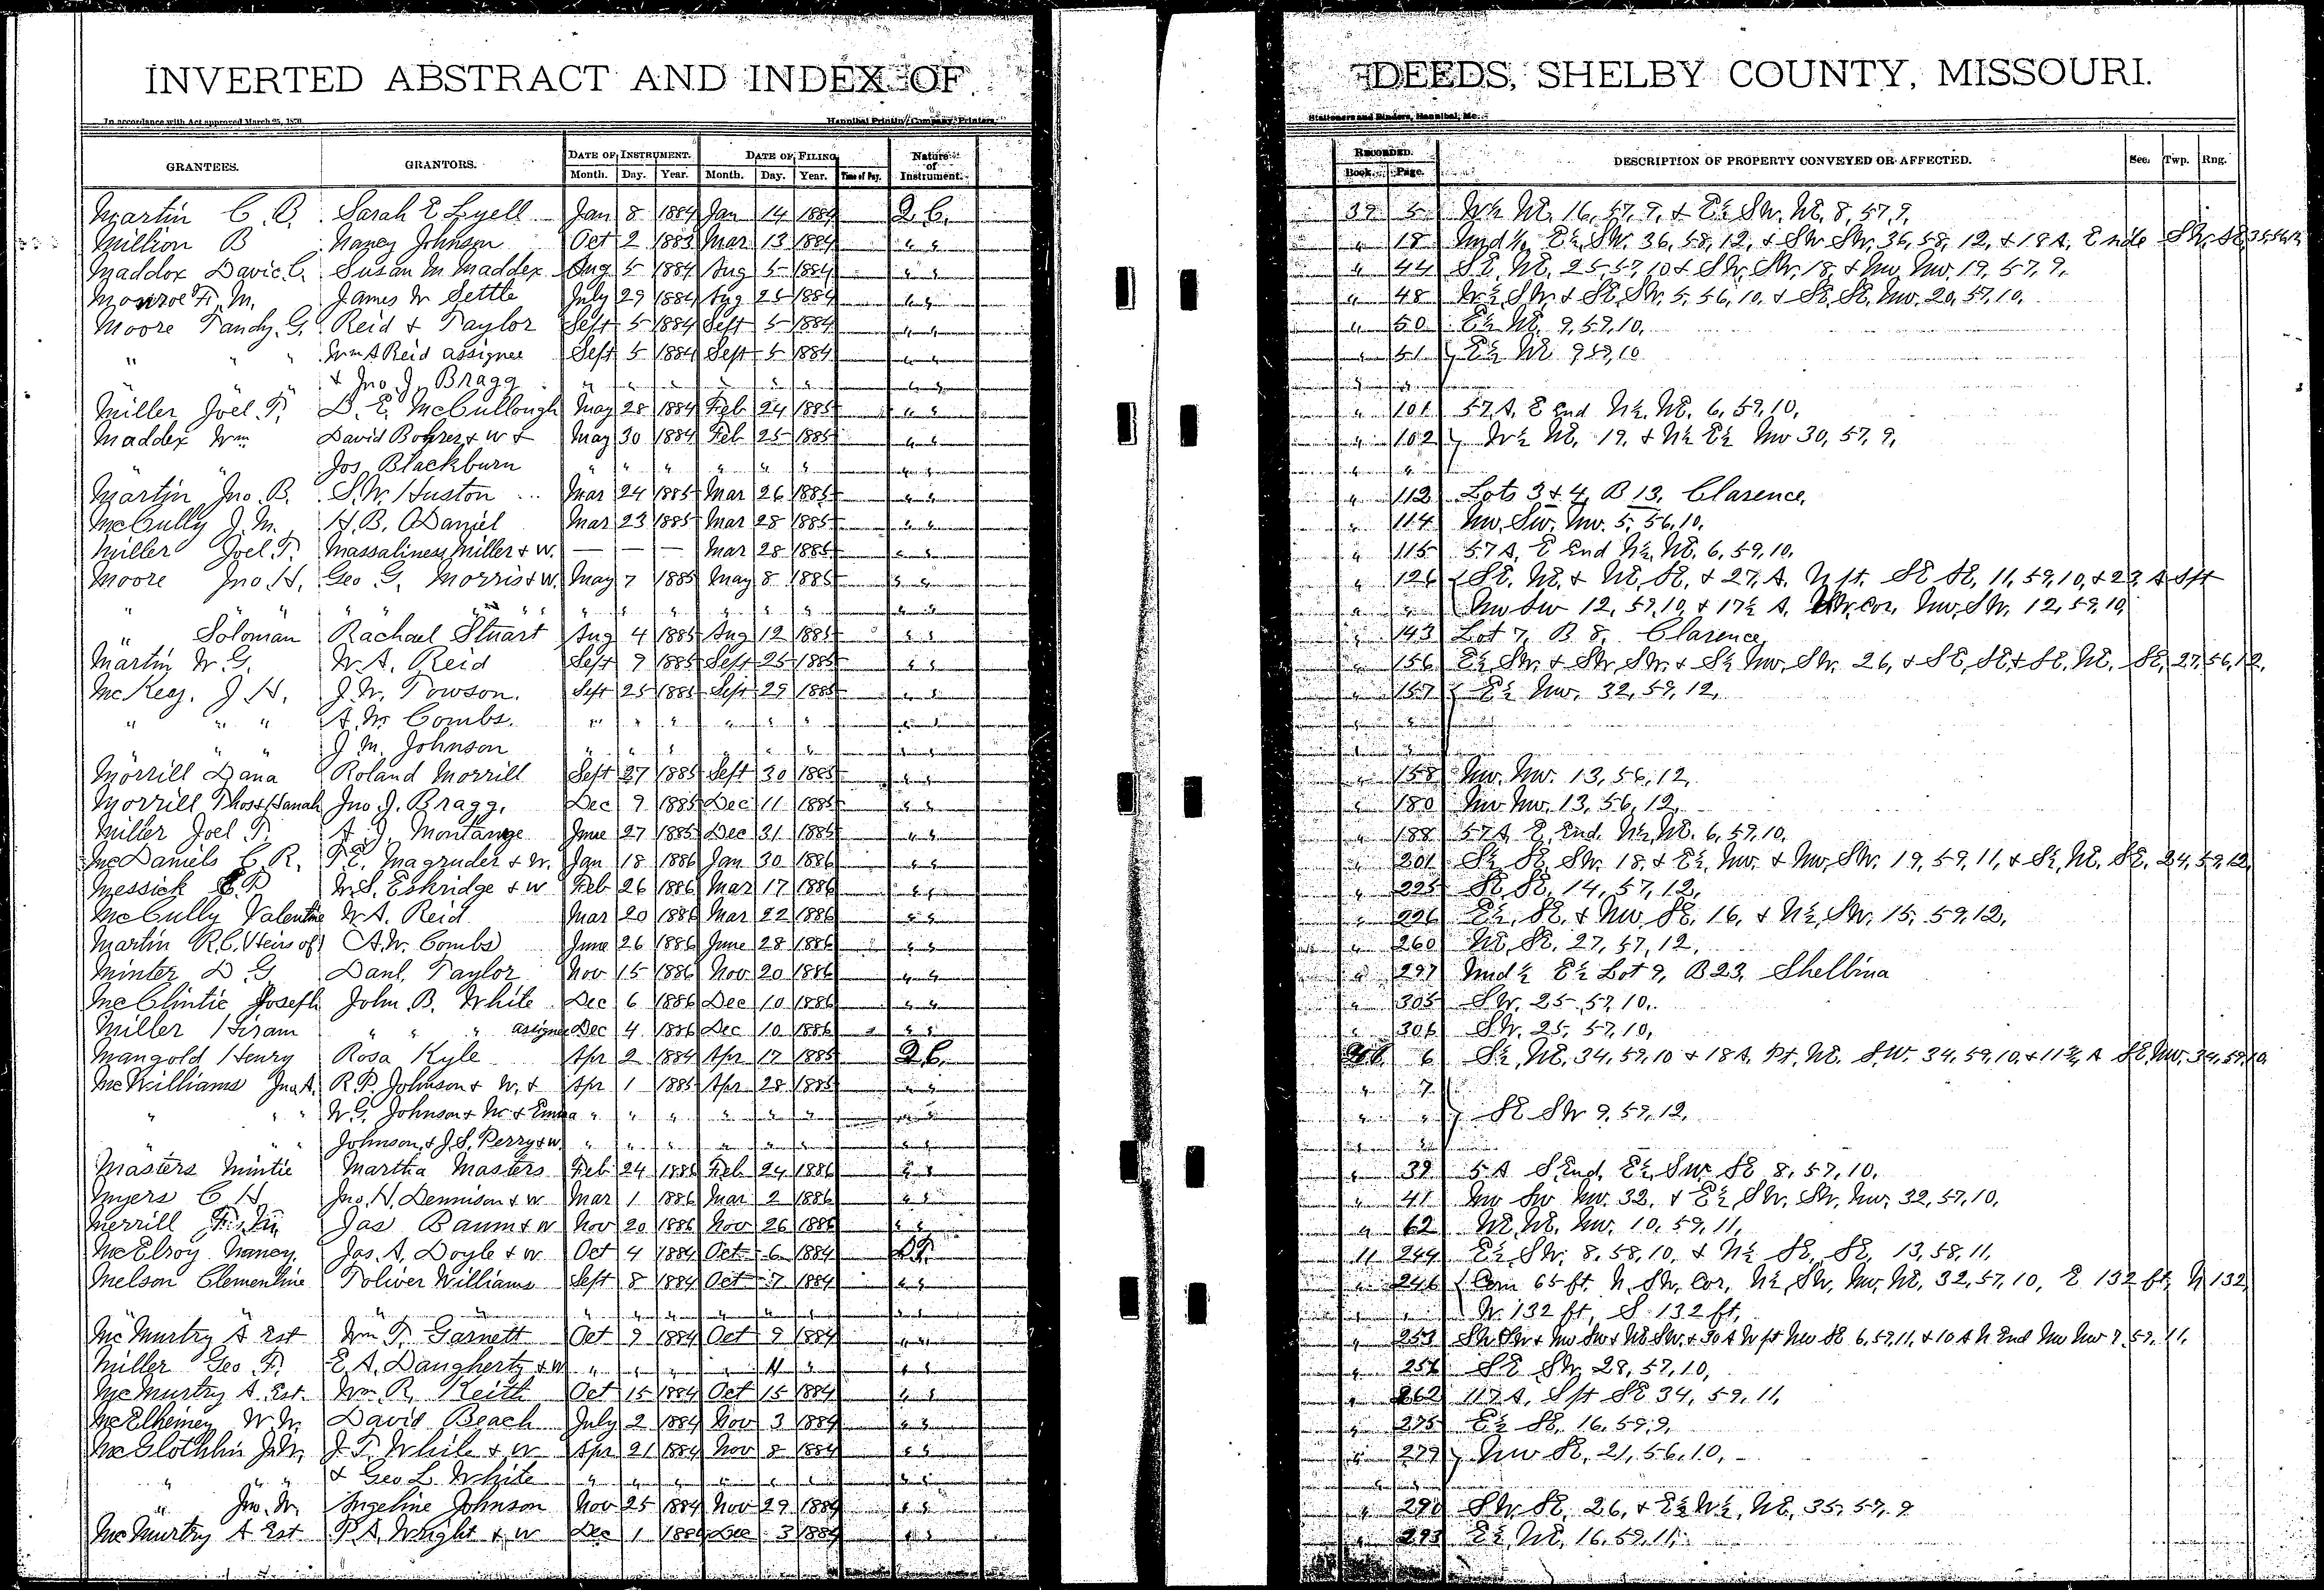 INVERTED ABSTRACT AND INDEX OF DEEDS, SHELBY COUNTY, MISSOURI.
In accordance with Act approved March 25, Hannibal Printing Company, Printers, Stationers and Binders, Hannibal, Mo.
GRANTEES. GRANTORS. DATE OF INSTRUMENT. Month. Day. Year. DATE OF FILING Month. Day. Year. Nature of Instrument. RECORDED. Book. Page. DESCRIPTION OF PROPERTY CONVEYED OR AFFECTED. Sec. Twp. Rng.
Martin C. B. Sarah E Lyell Jan 8 1884 Jan 14 1884 Q.C. 39 5 W½ NE, 16, 57, 9, & E½ SW, NE, 8, 57, 9,
Million B Nancy Johnson Oct 2 1883 Mar 13 1884 " " " 18 E½, SW. 36, 58, 12, & SW SW, 36, 58, 12, & 18 A, E
Maddox Davie C. Susan M. Maddex Aug 5 1884 Aug 5 1884 " " " 44 SE, NE, 25, 57, 10 & SW, SW, 18, & NW, NW, 19, 57, 9,
Monroe F. M. James W Settle July 29 1884 Aug 25 1884 " " " 48 W½ SW & SE, SW, 5, 56, 10, & SE, SE, NW. 20, 57, 10,
Moore Tandy. G. Reid & Taylor Sept 5 1884 Sept 5 1884 " " " 50 E½ NE, 9, 59, 10,
" " " Wm A Reid assignee Sept 5 1884 Sept 5 1884 " " " 51 } E½ NE 9 59, 10
" " & Jno. J. Bragg " " " " " " " " " "
Miller Joel T. D. E. McCullough May 28 1884 Feb 24 1885 " " " 101 57 A. E End N½, NE. 6, 59, 10,
Maddex Wm David Bohrer & W & May 30 1884 Feb 25 1885 " " " 102 } W½ NE, 19, & N½ E½ NW 30, 57, 9,
" " Jos Blackburn " " " " " " " " " "
Martin Jno. B. S. W. Huston Mar 24 1885 Mar 26 1885 " " " 112 Lots 3 & 4, B 13, Clarence,
McCully J. M. H. B. ODaniel Mar 23 1885 Mar 28 1885 " " " 114 NW, SW, NW. 5, 56, 10,
Miller Joel T. Massaliness Miller & W. — — — Mar 28 1885 " " " 115 57 A, E End N½, NE, 6, 59, 10,
Moore Jno. H. Geo G. Morris & W. May 7 1885 May 8 1885 " " " 126 { SE, NE, & NE, SE, & 27, A, N pt. SE SE, 11, 59, 10, & 23 A S pt
" " " " " " " " " " " " " " " " NW SW 12, 59, 10, & 17½ A, Cor, NW, SW, 12, 59, 10,
" Soloman Rachael Stuart Aug 4 1885 Aug 12 1885 " " " 143 Lot 7, B 8, Clarence,
Martin W. G. W. A. Reid Sept 9 1885 Sept 25 1885 " " " 156 E½ SW, & SW, SW, & S½ NW, SW, 26, & SE, SE, & SE, NE, SE, 27, 56, 12,
McKey. J H. J. W. Towson. Sept 25 1885 Sept 29 1885 " " " 157 { E½ NW. 32, 59, 12,
" " " A. W. Combs. " " " " " " " " " "
" " " J. M. Johnson " " " " " " " " " "
Morrill Dana Roland Morrill Sept 27 1885 Sept 30 1885 " " " 158 NW, NW. 13, 56, 12,
Morrill Thos & Hanah Jno. J. Bragg, Dec 9 1885 Dec 11 1885 " " " 180 NW NW. 13, 56, 12,
Miller Joel T. A. J. Montange June 27 1885 Dec 31 1885 " " " 188 57 A E, End. N½, NE. 6, 59, 10,
McDaniels C. R. T. E. Magruder & W. Jan 18 1886 Jan 30 1886 " " " 201 S½ SE SW. 18, & E½, NW. & NW, SW. 19, 59, 11, & S½, NE, SE, 24, 59, 12,
Messick E P W. S. Eskridge & W Feb 26 1886 Mar 17 1886 " " " 225 SE, SE, 14, 57, 12,
McCully Valentine W. A. Reid Mar 20 1886 Mar 22 1886 " " " 226 E½, SE, & NW, SE, 16, & N½ SW, 15, 59, 12,
Martin R. C. (Heirs of) A. W. Combs June 26 1886 June 28 1886 " " " 260 NE, SE, 27, 57, 12,
Minter D G Danl. Taylor Nov 15 1886 Nov 20 1886 " " " 297 Und ½ E½ Lot 9, B 23, Shelbina
McClintic Joseph John. B. White Dec 6 1886 Dec 10 1886 " " " 305 SW. 25, 57, 10,
Miller Hiram " " " assignee Dec 4 1886 Dec 10 1886 " " " 306 SW. 25, 57, 10,
Mangold Henry Rosa Kyle Apr 2 1884 Apr 17 1885 Q.C. 6 S½, NE, 34, 59, 10 & 18 A. Pt, NE, SW. 34, 59, 10, & 11 A SE, NW. 34, 59, 10,
McWilliams Jno A. R. P. Johnson & W. & Apr 1 1885 Apr 28 1885 " " " 7
" " " W. G. Johnson & W & Emma " " " " " " " " " " } SE SW 9, 59, 12,
" " " Johnson, & J. S. Perry & W. " " " " " " " " " "
Masters Mintie Martha Masters Feb 24 1886 Feb 24 1886 " " " 39 5 A S End, E½, SW. SE 8, 57, 10,
Myers C H Jno. H. Dennison & W Mar 1 1886 Mar 2 1886 " " " 41 NW SW NW. 32, & E½, SW, SW, NW, 32, 57, 10,
Merrill F. M. Jas Baum & W Nov 20 1886 Nov 26 1886 " " " 62 NE, NE, NW. 10, 59, 11,
McElroy Nancy Jas. A. Doyle & W Oct 4 1884 Oct 6 1884 D.T. 11 244 E½, SW, 8, 58, 10, & N½ SE, SE, 13, 58, 11,
Melson Clementine Toliver Williams Sept 8 1884 Oct 7 1884 " " " 246 { Com 65 ft, N, SW, Cor, N½, SW, NW, NE, 32, 57, 10, E 132 ft, N 132,
" " " " " " " " " " " " " W. 132 ft, S. 132 ft,
McMurtry A Est Wm T. Garnett Oct 9 1884 Oct 9 1884 " " " 253 SW SW & NW SW & NE SW, & 30 A W pt NW SE 6, 59, 11, & 10 A N End NW NW 7, 59, 11,
Miller Geo F. E A. Daugherty & W " " " " 11 " " " " 256 SE SW, 28, 57, 10,
McMurtry A Est. Wm. R, Keith Oct 15 1884 Oct 15 1884 " " " 262 117 A, S pt SE 34, 59, 11,
McElheiney W. W. David Beach July 2 1884 Nov 3 1884 " " " 275 E½ SE, 16, 59, 9,
McGlothlin J. W. J. T. White & W Apr 21 1884 Nov 8 1884 " " " 279 } NW SE, 21, 56, 10,
" " " & Geo L White " " " " " " " " " "
" Jno. W. Angeline Johnson Nov 25 1884 Nov 29 1884 " " " 290 SW, SE, 26, & E½ W½, NE, 35, 57, 9
McMurtry A Est P. A. Wright & W Dec 1 1884 Dec 3 1884 " " " 293 E½ NE, 16, 59, 11,